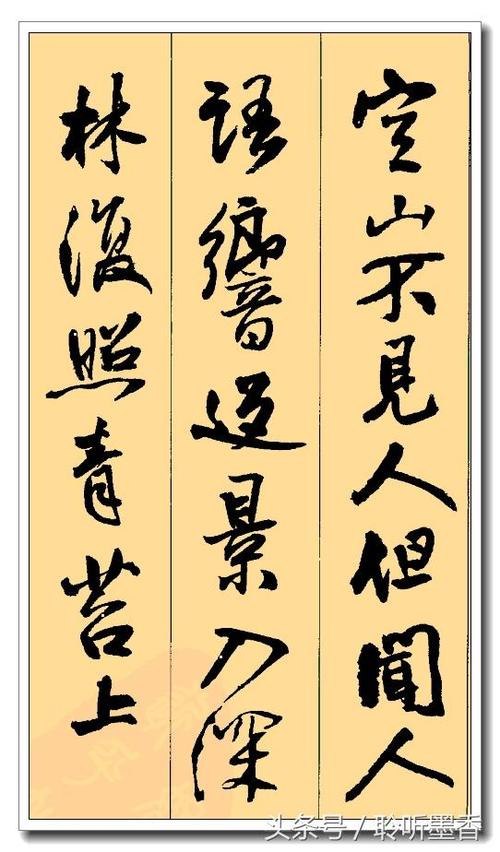 空山不見人但聞人
語響返景入深
林復照青苔上
头条号/聆听墨香